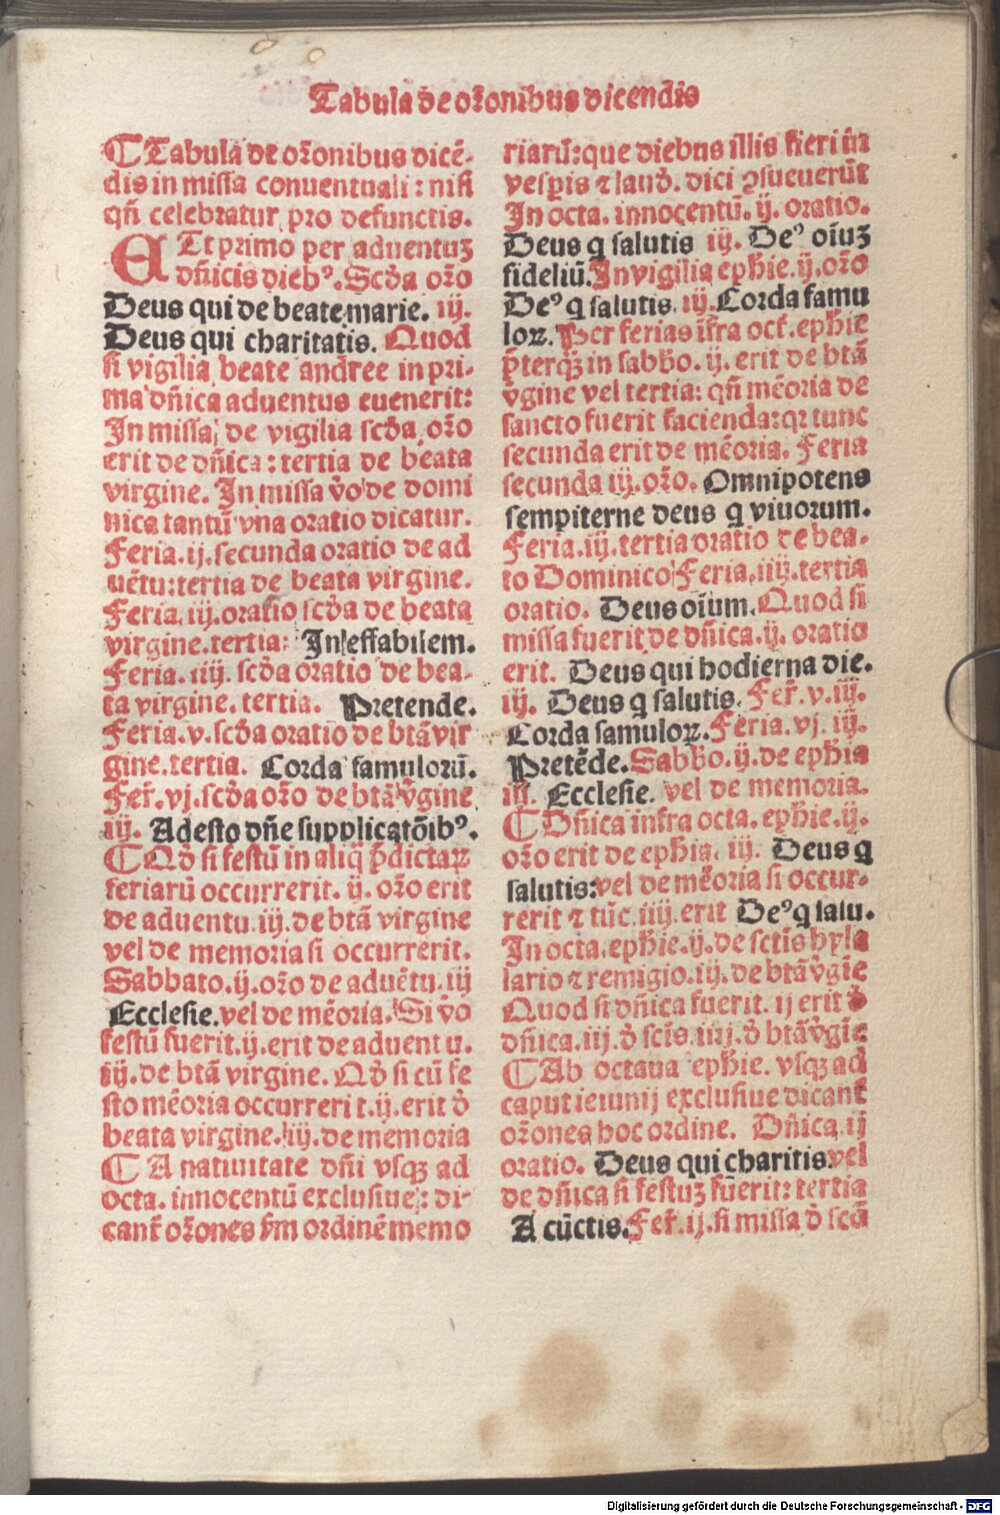 Tabula de or̃onibus dicendis
¶ Tabula de or̃onibus dicẽ-
dis in missa conuentuali: nisi
qñ celebratur pro defunctis.
ET Et primo per aduentuʒ
dñicis dieb⁹. Scđa or̃o
Deus qui de beate marie. iij.
Deus qui charitatis. Quod
si vigilia beate andree in pri-
ma dñica aduentus euenerit:
In missa de vigilia scđa or̃o
erit de dñica: tertia de beata
virgine. In missa v̊o de domi
nica tantũ vna oratio dicatur.
Feria.ij.secunda oratio de ad
uẽtu:tertia de beata virgine.
Feria.iij.oratio scđa de beata
virgine.tertia: Ineffabilem.
Feria.iiij.scđa oratio de bea-
ta virgine.tertia. Pretende.
Feria.v.scđa oratio de btã vir
gine.tertia. Corda famulorũ.
Fer̃.vj.scđa or̃o de btã v̊gine
iij. Adesto dñe supplicatõib⁹.
¶ Qđ si festũ in aliq̃ p̃dictaꝝ
feriarũ occurrerit. ij. or̃o erit
de aduentu.iij.de btã virgine
vel de memoria si occurrerit.
Sabbato.ij.or̃o de aduẽtu.iij
Ecclesie.vel de mẽoria. Si v̊o
festũ fuerit.ij.erit de aduentu.
iij.de btã virgine. Qđ si cũ fe
sto mẽoria occurrerit.ij.erit đ
beata virgine.iij.de memoria
¶ A natiuitate dñi vsqꝫ ad
octa. innocentũ exclusiue: di-
cant̃ or̃ones s̃m ordinẽ memo
riarũ:que diebus illis fieri in
vesp̃is ⁊ laud̃. dici ꝯsueuerũt
In octa. innocentũ. ij. oratio.
Deus q salutis iij. De⁹ oĩuʒ
fideliũ.In vigilia ep̃hie.ij.or̃o
De⁹ q salutis. iij.Corda famu
loꝝ.Per ferias ĩfra oct̃. ep̃hie
p̃terqꝫ in sabb̃o.ij.erit de btã
v̊gine vel tertia: qñ mẽoria de
sancto fuerit facienda:qꝛ tunc
secunda erit de mẽoria. Feria
secunda iij.or̃o. Omnipotens
sempiterne deus q viuorum.
Feria.iij.tertia oratio de bea-
to Dominico Feria.iiij.tertia
oratio. Deus oĩum.Quod si
missa fuerit de dñica.ij. oratio
erit. Deus qui hodierna die.
iij. Deus q salutis. Fer̃.v.iij.
Corda famuloꝝ.Feria.vj. iij.
Pretẽde.Sabb̃o.ij.de ep̃hia
iij. Ecclesie. vel de memoria.
¶ Dñica infra octa. ep̃hie.ij.
or̃o erit de ep̃hia. iij. Deus q
salutis:vel de mẽoria si occur-
rerit ⁊ tũc.iiij.erit De⁹ q salu.
In octa.ep̃hie.ij.de sctĩs hyla
lario ⁊ remigio.iij.de btã v̊gĩe
Quod si dñica fuerit. ij erit đ
dñica.iij.đ sctĩs.iiij.đ btã v̊gĩe
¶ Ab octaua ep̃hie. vsqꝫ ad
caput ieiunij exclusiue dicant̃
or̃ones hoc ordine. Dñica.ij
oratio. Deus qui charitis.vel
de dñica si festuʒ fuerit: tertia
A cũctis.Fer̃.ij.si missa đ scõ
Digitalisierung gefördert durch die Deutsche Forschungsgemeinschaft - DFG